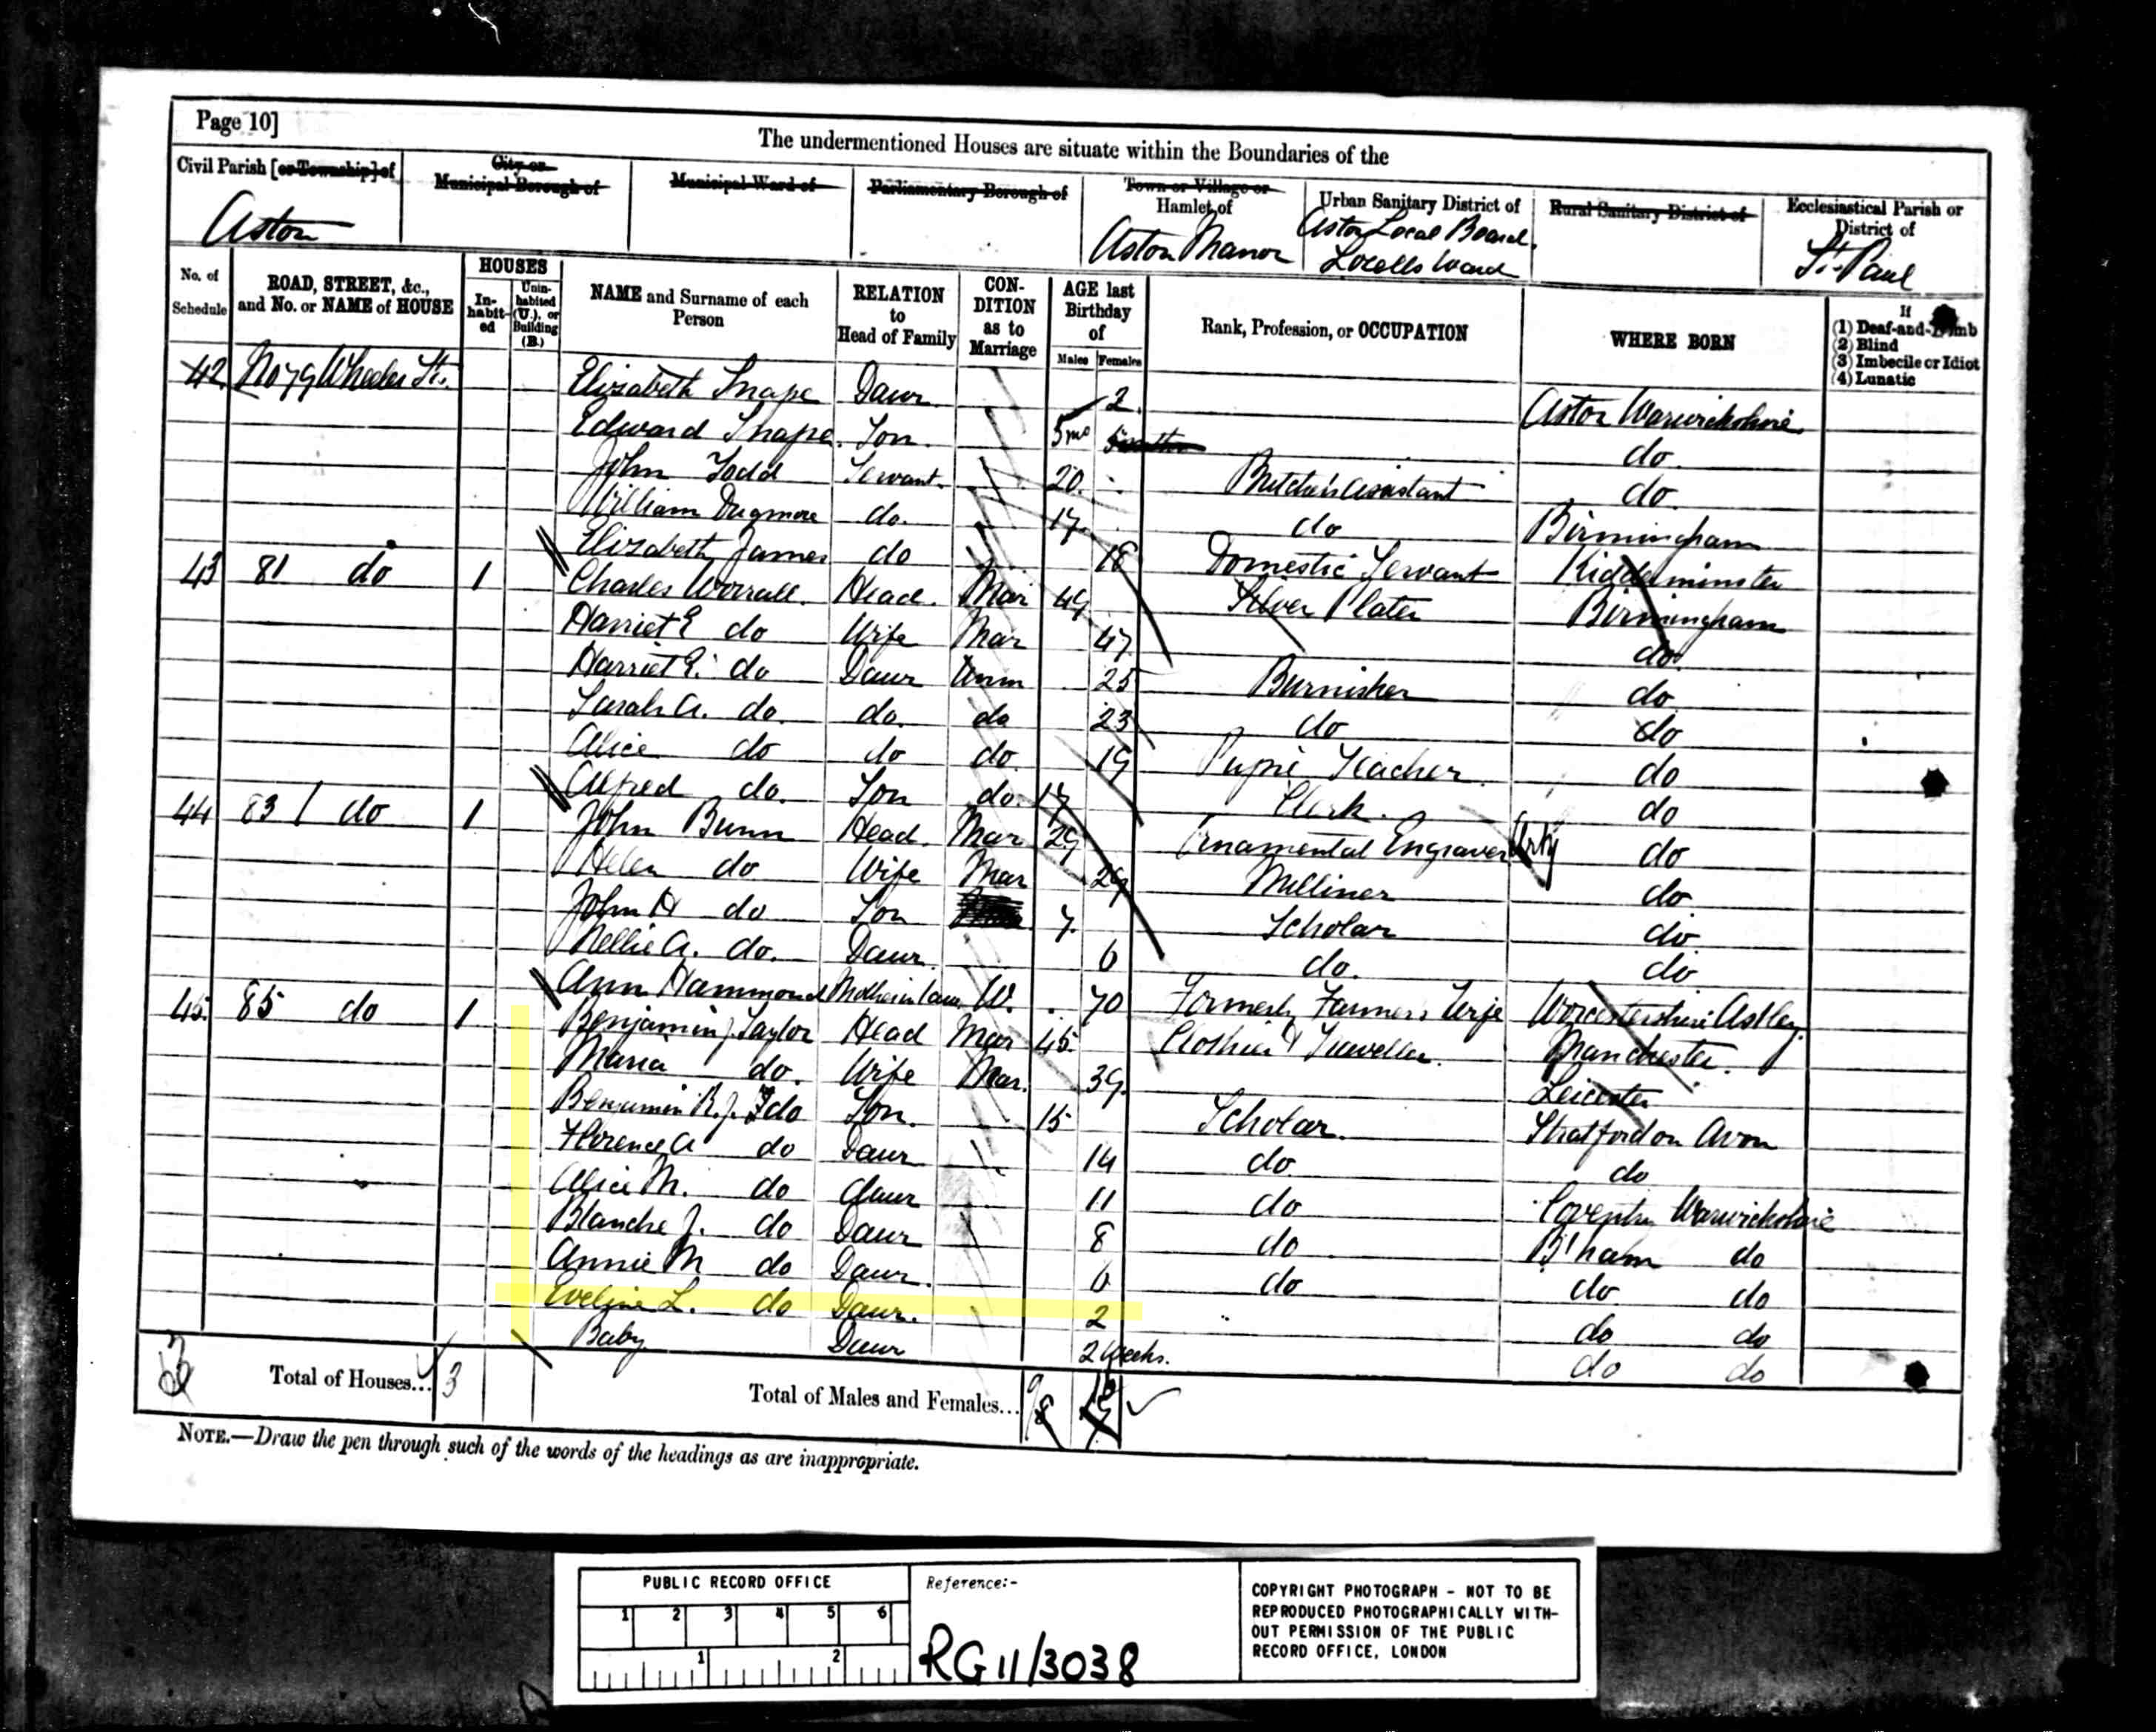 Page 10]
The undermentioned Houses are situate within the Boundaries of the
Civil Parish [or Township] of
City or Municipal Borough of
Municipal Ward of
Parliamentary Borough of
Town or Village or Hamlet of
Urban Sanitary District of
Rural Sanitary District of
Ecclesiastical Parish or District of
Aston
Aston Manor
Aston Local Board
Lozells Ward
St. Paul
No. of Schedule
ROAD, STREET, &c., and No. or NAME of HOUSE
HOUSES
In-habit-ed
Unin-habited (U.), or Building (B.)
NAME and Surname of each Person
RELATION to Head of Family
CON-DITION as to Marriage
AGE last Birthday of
Males Females
Rank, Profession, or OCCUPATION
WHERE BORN
If
(1) Deaf-and-Dumb
(2) Blind
(3) Imbecile or Idiot
(4) Lunatic
42 No 79 Wheeler St. Elizabeth Snape Daur 2 Aston Warwickshire
Edward Snape Son 5mo do
John Todd Servant 20 Butchers assistant do
William Dugmore do 17 do Birmingham
Elizabeth James do 18 Domestic Servant Kidderminster
43 81 do 1 Charles Worrall Head Mar 49 Silver Plater Birmingham
Harriet E do Wife Mar 47 do
Harriet E. do Daur Unm 25 Burnisher do
Sarah A. do do do 23 do do
Alice do do do 19 Pupil Teacher do
Alfred do Son do 17 Clerk do
44 83 do 1 John Bunn Head Mar 29 Ornamental Engraver do
Helen do Wife Mar 29 Milliner do
John H do Son 7 Scholar do
Nellie A. do Daur 6 do do
Ann Hammond Mother in law W. 70 Formerly Farmer's Wife Worcestershire Astley
45 85 do 1 Benjamin J. Taylor Head Mar 45 Clothier & Jeweller Manchester
Maria do Wife Mar. 39 Leicester
Benjamin R. J. do Son 15 Scholar Stratford on Avon
Florence A do Daur 14 do do
Alice M. do Daur 11 do Coventry Warwickshire
Blanche J. do Daur 8 do B'ham do
Annie M do Daur 6 do do do
Eveline L. do Daur. 2 do do
Baby Daur 2 Weeks. do do
3 Total of Houses... 3
Total of Males and Females...
NOTE.—Draw the pen through such of the words of the headings as are inappropriate.
PUBLIC RECORD OFFICE
1 2 3 4 5 6
1 2
Reference:-
RG 11/3038
COPYRIGHT PHOTOGRAPH - NOT TO BE
REPRODUCED PHOTOGRAPHICALLY WITH-
OUT PERMISSION OF THE PUBLIC
RECORD OFFICE, LONDON